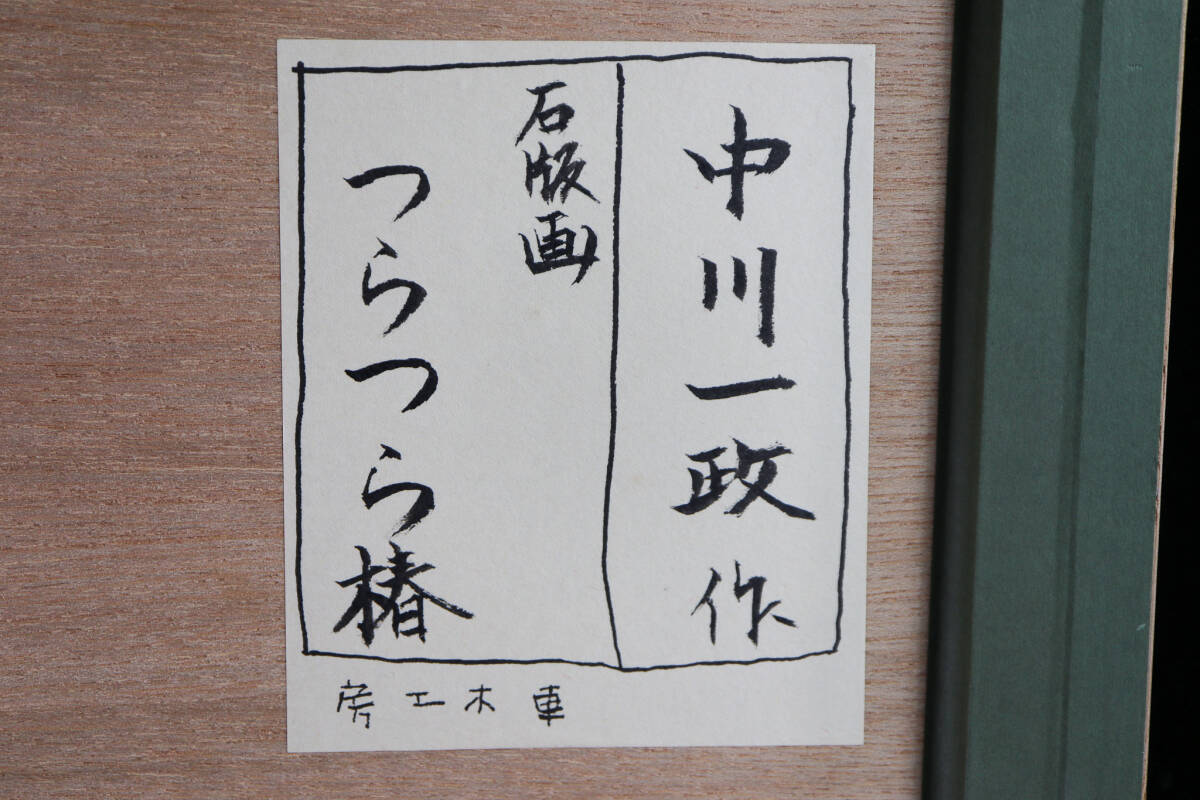 中川一政作
石版画
つらつら椿
車木工房